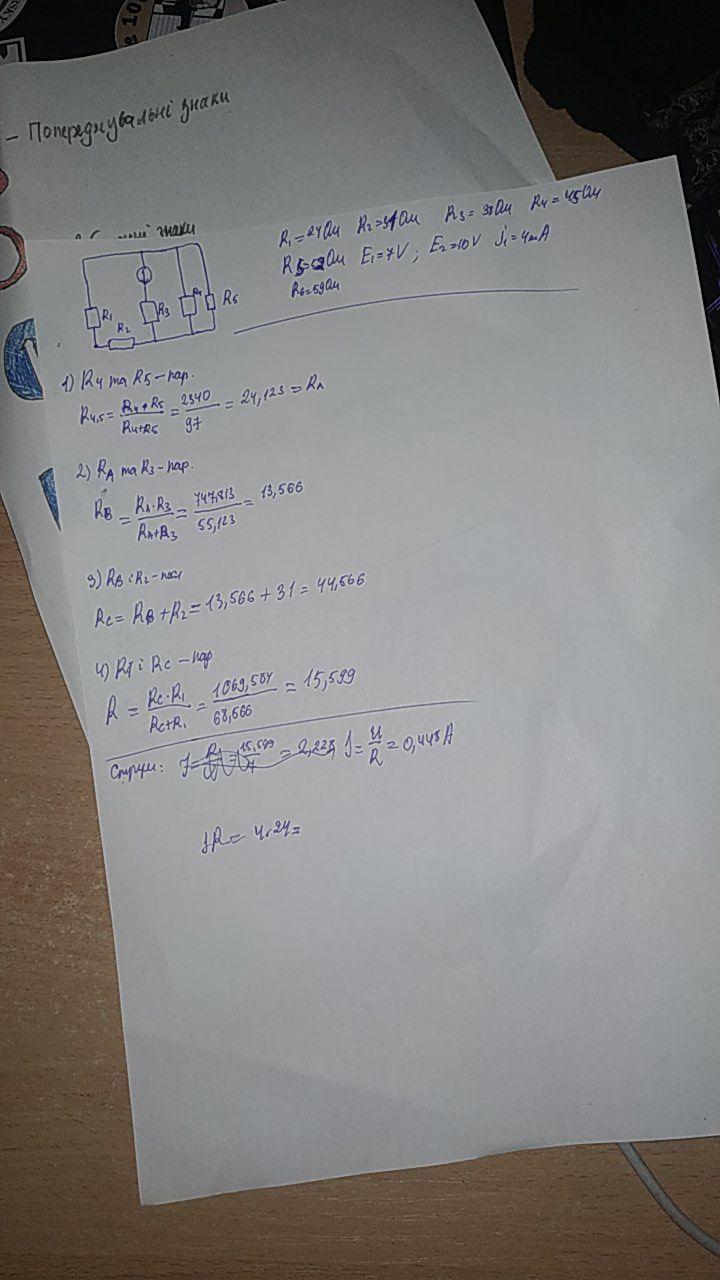 - Попереджувальні знаки
знаки
R₁=24Ом R₂=31Ом R₃=31Ом R₄=45Ом
R₅= Ом E₁=7V; E₂=10V j₁=4mA
R₆=59Ом
R₁
R₂
R₃
R₄
R₆
1) R₄ та R₅ - пар.
R₄,₅ = R₄+R₅ / R₄+R₅ = 2340 / 97 = 24,123 = RA
2) RA та R₃ - пар.
RB = RA·R₃ / RA+R₃ = 747,813 / 55,123 = 13,566
3) RB i R₂ - посл
RC = RB + R₂ = 13,566 + 31 = 44,566
4) R₁ i RC - пар
R = RC·R₁ / RC+R₁ = 1069,584 / 68,566 = 15,599
Струм: J = 15,599 / 7 = 2,228 J = u / R = 0,448A
JR = 4.24=